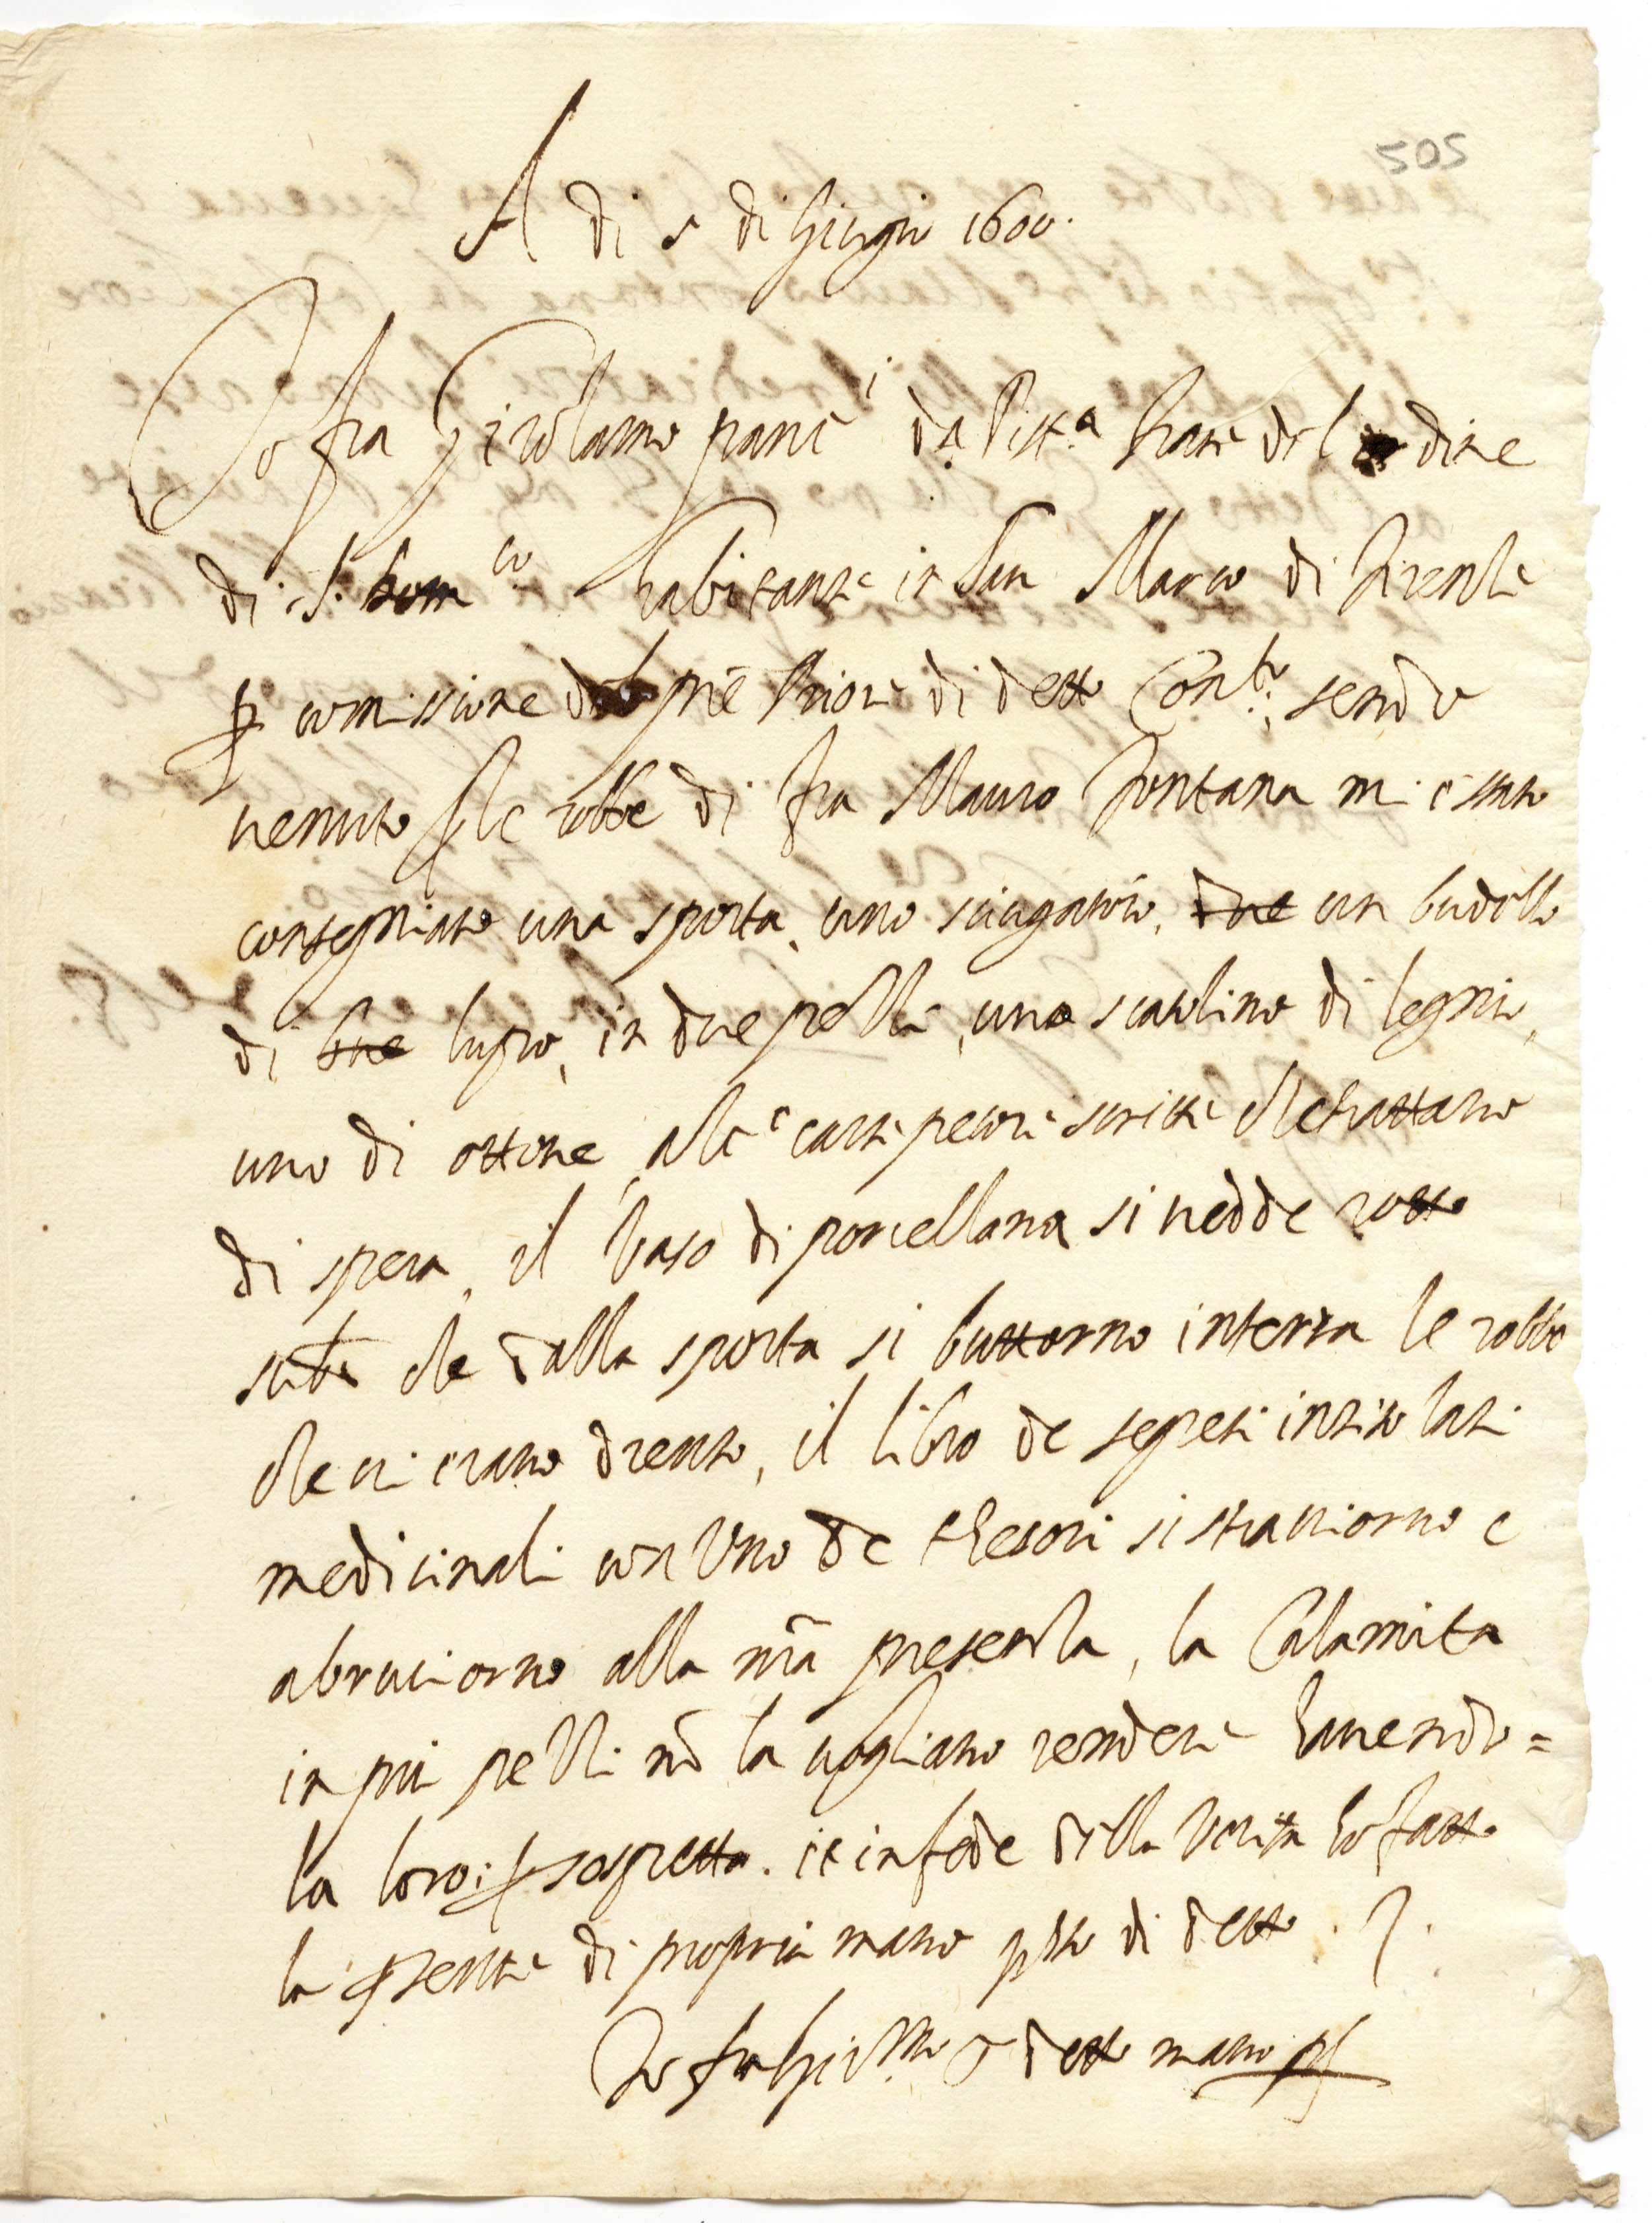 505
A di 5 di Giugno 1600.
Io fra Girolamo pan da Pist.a frate del ordine
di S. Dom.co habitante in San Marco di Firenze
p comissione del pre Priore di detto Con.to sendo
venuto p le robbe di fra Mauro Fontana mi è stato
consegniato una sporta, uno sciugatoio, due un budello
di bue lupo, in due pelli, uno scatolino di legnio,
uno di ottone, alc.e carte pecore scritte che trattano
di spera, il vaso di porcellana si vedde rotto
subito che dalla sporta si buttorno in terra le robbe
che vi erano drento, il libro de segreti intitolati
medicinali con uno de thesori si stracciorno e
abruciorno alla mia presenzia, la Calamita
in piu pelli nō la vogliano rendere havendo=
la loro p sospetta. et in fede della verita ho fatto
la p̄sente di propria mano q.sto di detto.
Io fra Gir.mo detto mano pp